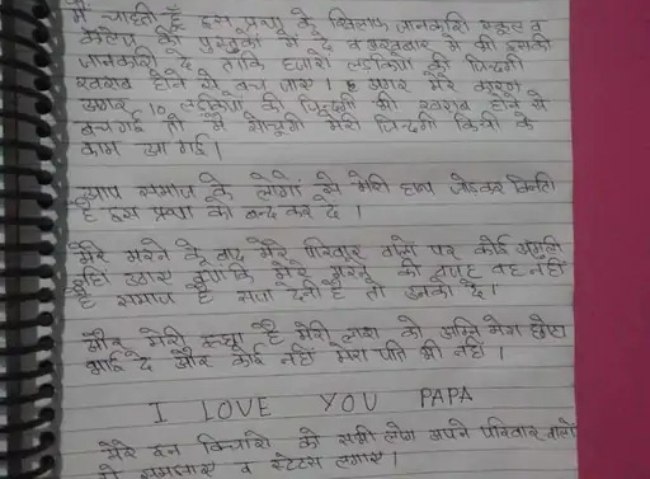 मैं चाहती हूँ इस प्रथा के खिलाफ जानकारी स्कूल व
कॉलेज की पुस्तकों में दे व अखबार में भी इसकी
जानकारी दे ताकि हजारो लड़किया की जिन्दगी
खराब होने से बच जाए। अगर मेरे कारण
अगर 10 लड़कियों की जिन्दगी भी खराब होने से
बच गई तो मैं सोचूगी मेरी जिन्दगी किसी के
काम आ गई।
आप समाज के लोगों से मेरी हाथ जोडकर विनती
है इस प्रथा को बन्द कर दे।
मेरे मरने के बाद मेरे परिवार वालो पर कोई अंगुली
नहि उठाए क्योंकि मेरे मरने की वजह वह नहीं
है समाज है सजा देनी है तो उनको दे।
और मेरी इच्छा है मेरी लाश को अग्नि मेरा छोटा
भाई दे और कोई नहि मेरा पति भी नहि।
I LOVE YOU PAPA
मेरे इन विचारो को सभी लोग अपने परिवार वालों
को समझाए व स्टेटस लगाए।